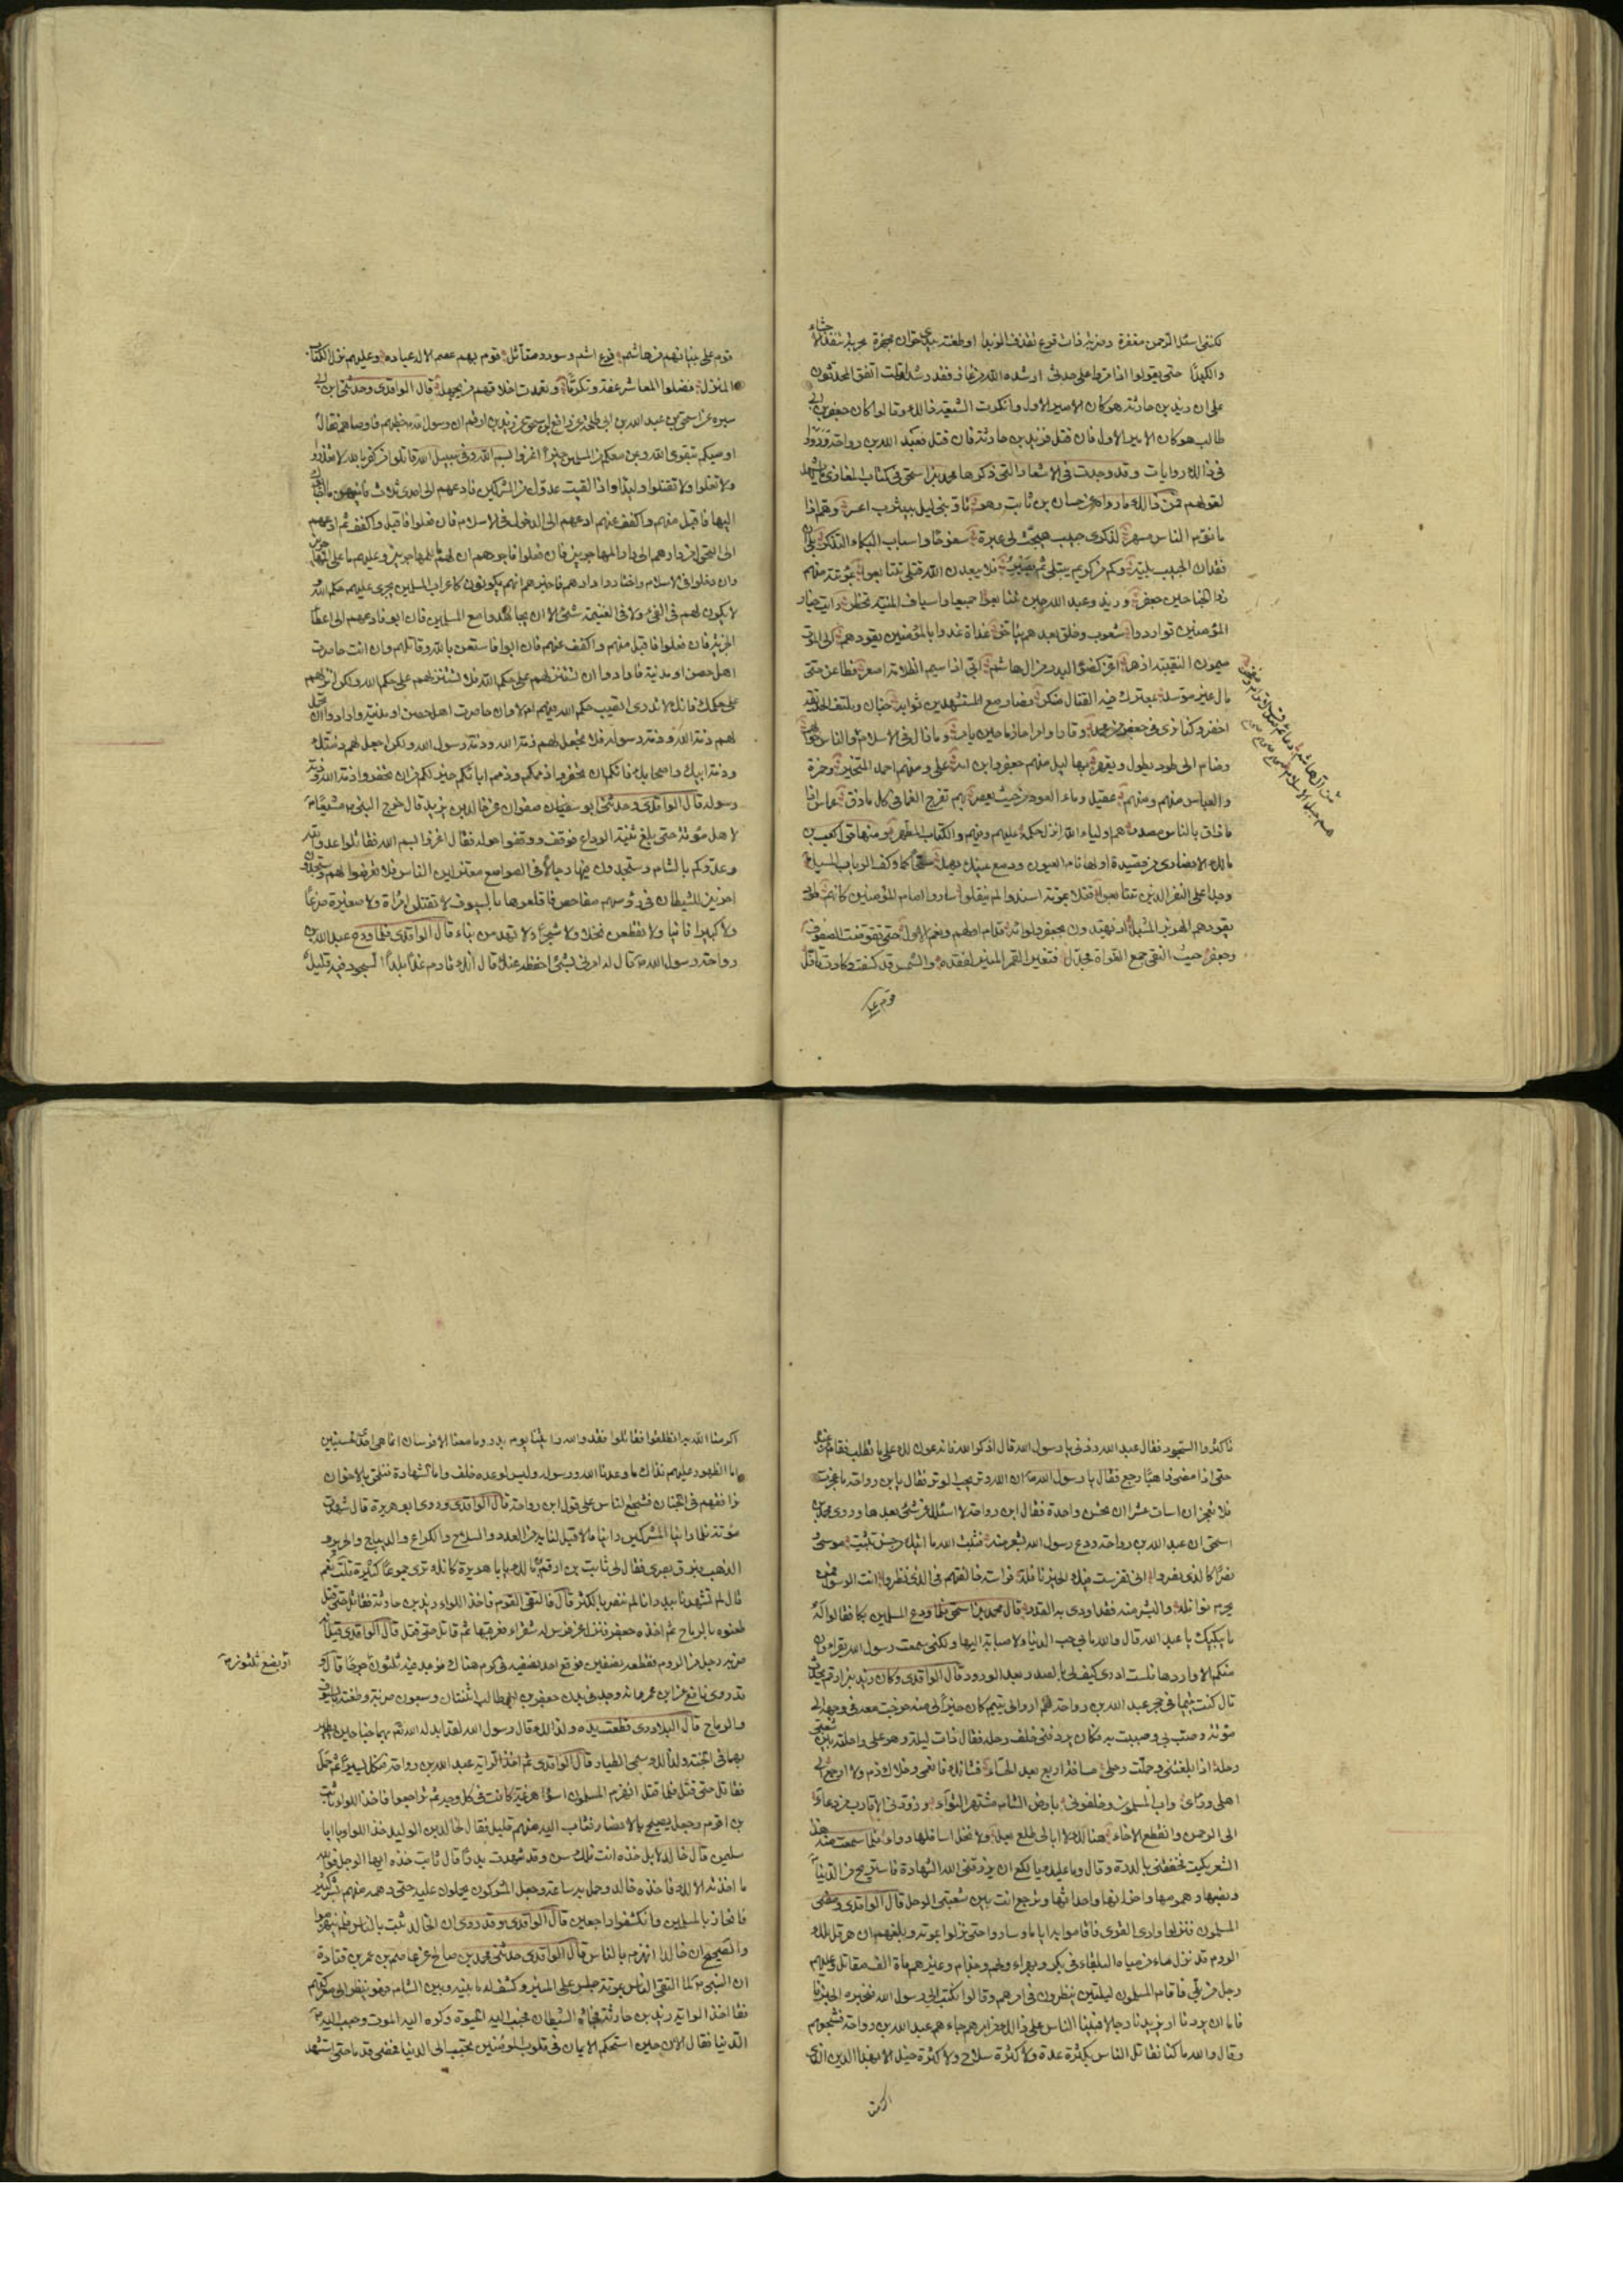 لكننى اسئل الرحمن مغفرة وضربة ذات قرع تقذف الزبدا او طعنة بيدى حران مجهزة بحربة تنفذ الاحشاء
والكبدا حتى يقولوا اذا مروا على جدثى ارشده الله من غاز فقد رشدا قلت اتفق المحدثون
على ان زيد بن حارثة هو كان الامير الاول وانكرت الشيعة ذالك وقالوا كان جعفر بن ابى
طالب هو كان الامير الاول فان قتل فزيد بن حارثة فان قتل فعبد الله بن رواحة ورووا
فى ذالك روايات وقد وجدت فى الاشعار التى ذكرها محمد بن اسحق فى كتاب المغازى ما يشهد
لقولهم فمن ذالك ما رواه عن حسان بن ثابت وهو تاوبنى ليل بيثرب اعسر وهم اذا
ما نوم الناس مسهر لذكرى حبيب هيجت لى عبرة سفوحا واسباب البكاء التذكر بلى ان
فقدان الحبيب بلية وكم من كريم يبتلى ثم يصبر فلا يبعدن الله قتلى تتابعوا بموتة منهم
ذو الجناحين جعفر وزيد وعبد الله حين تتابعوا جميعا واسياف المنية تخطر رايت خيار
المؤمنين تواردوا شعوب وخلق بعدهم يتاخر غداة غدوا بالمؤمنين يقودهم الى الموت
ميمون النقيبة ازهر اغر كضوء البدر من ال هاشم ابى اذا سيم الظلامة اصعر فطاعن حتى
مال غير موسد بمعترك فيه القنا متكسر فصار مع المستشهدين ثوابه جنان وملتف الحدائق
اخضر وكنا نرى فى جعفر من محمد وقارا وامرا حازما حين يامر وما زال فى الاسلام
والناس حوله
رضام الى طود يطول ويقهر بهاليل منهم جعفر وابن امه على ومنهم احمد المتخير وحمزة
والعباس منهم ومنهم عقيل وماء العود من حيث يعصر بهم تفرج الغماء فى كل مازق عماس اذا
ما ضاق بالناس مصدر هم اولياء الله انزل حكمه عليهم وفيهم والكتاب المطهر ومنها قول كعب بن
مالك الانصارى من قصيدة اولها نام العيون ودمع عينك يهمل سحا كما وكف الرباب المسبل
وجدا على النفر الذين تتابعوا قتلا بموتة اسندوا لم ينقلوا ساروا امام المؤمنين كانهم
يقودهم الهزبر المشبل اذ يهتدون بجعفر ولوائه قدام اولهم ونعم الاول حتى تفوتت الصفوف
وجعفر حيث التقى جمع الغواة مجدل فتغير القمر المنير لفقده والشمس قد كسفت وكادت تافل
قوم على
قوم على بنيانهم من هاشم فرع اشم وسودد متاثل قوم بهم عصم الاله عباده وعليهم نزل الكتاب
المنزل فضلوا المعاشر عفة وتكرما وتغمدت اخلاقهم من يجهل قال الواقدى وحدثنى ابن ابى
سبره عن اسحق بن عبد الله بن ابى طلحة عن رافع بن اسحق عن زيد بن ارقم ان رسول الله خطبهم فاوصاهم فقال
اوصيكم بتقوى الله وبمن معكم من المسلمين خيرا اغزوا بسم الله وفى سبيل الله قاتلوا من كفر بالله لا تغدروا
ولا تغلوا ولا تقتلوا وليدا واذا لقيت عدوك من المشركين فادعهم الى احدى ثلاث
اليها فاقبل منهم واكفف عنهم ادعهم الى الدخول فى الاسلام فان فعلوا فاقبل واكفف ثم ادعهم
الى التحول من دارهم الى دار المهاجرين فان فعلوا فاخبرهم ان لهم ما للمهاجرين وعليهم ما على المهاجرين
وان دخلوا فى الاسلام واختاروا دارهم فاخبرهم انهم يكونون كاعراب المسلمين يجرى عليهم حكم الله
لا يكون لهم فى الفىء ولا فى الغنيمة شئ الا ان يجاهدوا مع المسلمين فان ابوا فادعهم الى اعطاء
الجزية فان فعلوا فاقبل منهم واكفف عنهم فان ابوا فاستعن بالله وقاتلهم وان انت حاصرت
اهل حصن او مدنية فارادوا ان تستنزلهم على حكم الله فلا تستنزلهم على حكم الله ولكن انزلهم
على حكمك فانك لا تدرى اتصيب حكم الله فيهم ام لا وان حاصرت اهل حصن او مدنية وارادوا ان تجعل
لهم ذمة الله وذمة رسوله فلا تجعل لهم ذمة الله وذمة رسول الله ولكن اجعل لهم ذمتك
وذمة ابيك واصحابك فانكم ان تخفروا ذممكم وذمم ابائكم خير لكم من ان تخفروا ذمة الله وذمة
رسوله قال الواقدى وحدثنى ابو صفوان عن خالد بن يزيد قال خرج النبى مشيعا
لاهل مؤتة حتى بلغ ثنية الوداع فوقف ووقفوا حوله فقال اغزوا بسم الله فقاتلوا عدو الله
وعدوكم بالشام وستجدون فيها رجالا فى الصوامع معتزلين الناس فلا تعرضوا لهم وستجدون
اخرين للشيطان فى رؤسهم مفاحص فاقلعوها بالسيوف لا تقتلن امراة ولا صغيرة ضرعا
ولا كبيرا فانيا ولا تقطعن نخلا ولا شجرا ولا تهدمن بناء قال الواقدى فلما ودع عبد الله بن
رواحة رسول الله قال له مرنى بشئ احفظه عنك قال انك قادم غدا بلدا السجود فيه قليل
فاكثروا السجود فقال عبد الله زدنى يا رسول الله قال اذكر الله فانه عون لك على ما تطلب فقام من عنده
حتى اذا مضى ذاهبا رجع فقال يا رسول الله ان الله وتر يحب الوتر فقال يابن رواحة ما عجزت
فلا تعجز ان اسات عشرا ان تحسن واحدة فقال ابن رواحة لا اسئلك عن شئ بعدها وروى محمد بن
اسحق ان عبد الله بن رواحة ودع رسول الله بشعر منه فثبت الله ما اتاك من حسن تثبيت موسى
نصرا كالذى نصروا انى تفرست فيك الخير نافلة فراسة خالفتهم فى الذى نظروا انت الرسول فمن
يحرم نوافله والبشر منه فقد اودى به القدر قال محمد بن اسحق فلما ودع المسلمين بكا فقالوا له
ما يبكيك يا عبد الله قال والله ما بى حب الدنيا ولا صبابة اليها ولكنى سمعت رسول الله يقرا وان
منكم الا واردها فلست ادرى كيف لى بالصدر بعد الورود قال الواقدى وكان زيد بن ارقم يحدث
قال كنت يتيما فى حجر عبد الله بن رواحة فلم ار والى يتيم كان خيرا لى منه خرجت معه فى وجهه الى
مؤتة وصب بى وصببت به فكان يردفنى خلف رحله فقال ذات ليلة وهو على راحلته بين شعبتى
رحله اذا بلغتنى وحملت رحلى مسافة اربع بعد الحساء فشانك فانعمى وخلاك ذم ولا ارجع الى
اهلى ورائى واب المسلمون وخلفونى بارض الشام مشتهر الثواء وزودنى الاقارب من دعاء
الى الرحمن وانقطع الاخاء هنالك لا ابالى طلع بعل ولا نخل اسافلها رواء فلما سمعت منه هذا
الشعر بكيت فخفقنى بالدرة وقال وما عليك يا لكع ان يرزقنى الله الشهادة فاستريح من الدنيا
ونصبها وهمومها واحزانها واحداثها وترجع انت بين شعبتى الرحل قال الواقدى ومضى
المسلمون فنزلوا وادى القرى فاقاموا به اياما وساروا حتى نزلوا بموتة وبلغهم ان هرقل ملك
الروم قد نزل ماء من مياه البلقاء فى بكر وبهراء ولخم وجذام وغيرهم ماة الف مقاتل وعليهم
رجل من بلى فاقام المسلمون ليلتين ينظرون فى امرهم وقالوا نكتب الى رسول الله فنخبره الخبر فا
فاما ان يردنا او يزيدنا رجالا فبينا الناس على ذالك من امرهم جاءهم عبد الله بن رواحة فشجعهم
وقال والله ما كنا نقاتل الناس بكثرة عدة ولا كثرة سلاح ولا كثرة خيل الا بهذا الدين الذى
اكرمنا
اكرمنا الله به انطلقوا فقاتلوا فقد والله رايتنا يوم بدر وما معنا الا فرسان انما هى احدى الحسنيين
اما الظهور عليهم فذاك ما وعدنا الله ورسوله وليس لوعده خلف واما الشهادة فنلحق بالاخوان
نرافقهم فى الجنان فشجع الناس على قول ابن رواحة قال الواقدى وروى ابو هريرة قال شهدت
مؤتة فلما راينا المشركين راينا ما لا قبل لنا به من العدد والسلاح والكراع والديباج والحرير و
الذهب فبرق بصرى فقال لى ثابت بن ارقم مالك يابا هريرة كانك ترى جموعا كثيرة قلت نعم
قال لم تشهدنا ببدر انا لم ننصر بالكثرة قال فالتقى القوم فاخذ اللواء زيد بن حارثة فقاتل حتى قتل
طعنوه بالرماح ثم اخذه جعفر فنزل عن فرس له شقراء فعرقبها ثم قاتل حتى قتل قال الواقدى قيل انه
ضربه رجل من الروم فقطعه بنصفين فوقع احد نصفيه فى كرم هناك فوجد فيه ثلثون جرحا قال و
قد روى نافع عن ابن عمر انه وجد فى بدن جعفر بن ابى طالب اثنتان وسبعون ضربة وطعنة بالسيوف
والرماح قال البلاذرى قطعت يديه ولذالك قال رسول الله لقد ابدله الله بهما جناحين يطير
بهما فى الجنة ولذالك سمى الطيار قال الواقدى ثم اخذ الراية عبد الله بن رواحة فنكل يسيرا ثم حمل
فقاتل حتى قتل فلما قتل انهزم المسلمون اسوا هزيمة كانت فى كل وجه ثم تراجعوا فاخذ اللواء ثابت
بن اقرم وجعل يصيح بالانصار فثاب اليه منهم قليل فقال لخالد بن الوليد خذ اللواء يابا
سليمن قال خالد لا بل خذه انت فلك سن وقد شهدت بدرا قال ثابت خذه ايها الرجل فوالله
ما اخذته الا لك فاخذه خالد وحمل به ساعة وجعل المشركون يحملون عليه حتى دهمه منهم بشر كثير
فانحاز بالمسلمين وانكشفوا راجعين قال الواقدى وقد روى ان خالدا ثبت بالناس فلم ينهزموا
والصحيح ان خالدا انهزم بالناس قال الواقدى حدثنى محمد بن صالح عن عاصم بن عمر بن قتادة
ان النبى لما التقى الناس بموتة جلس على المنبر وكشف له ما بينه وبين الشام فهو ينظر الى معركتهم
فقال اخذ الراية زيد بن حارثة فجاءه الشيطان فحبب اليه الحيوة وكره اليه الموت وحبب اليه
الدنيا فقال الان حين استحكم الايمان فى قلوب المومنين تحبب الى الدنيا فمضى قدما حتى استشهد